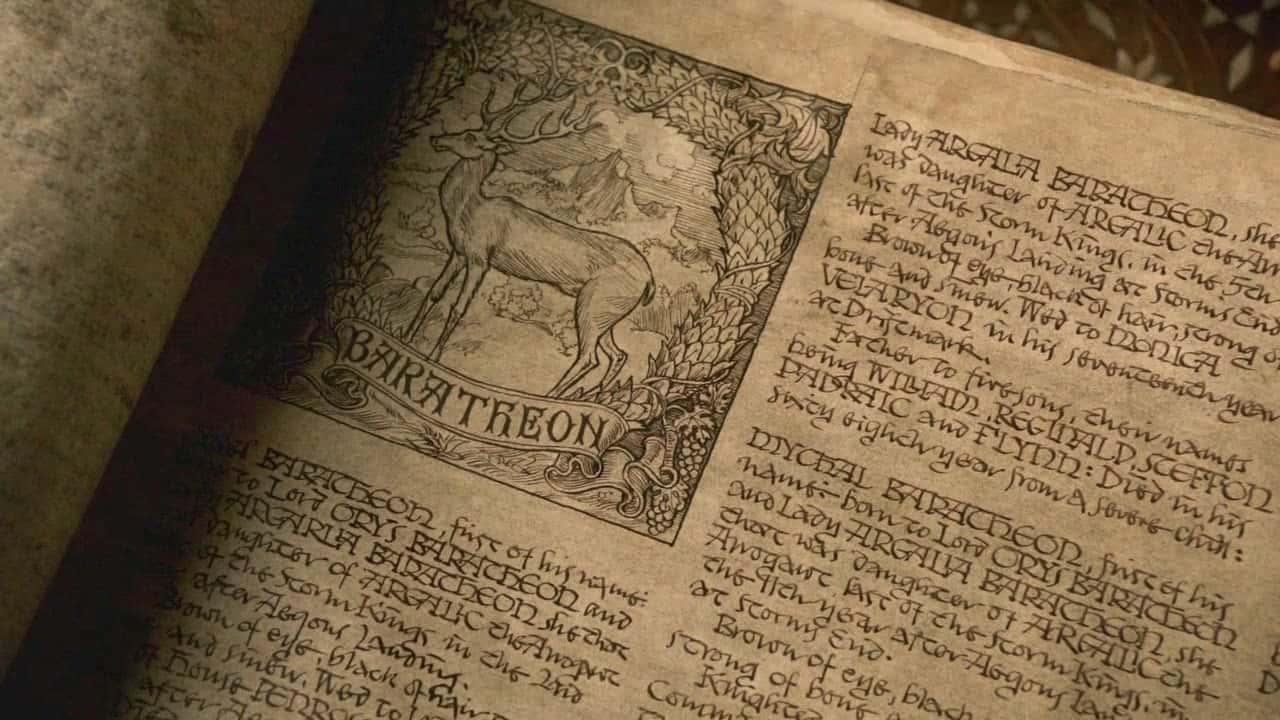 BARATHEON
BARATHEON, first of his name:
to Lord ORYS BARATHEON and
ARGARLA BARATHEON, she that
daughter of ARGALIC the Arrogant
of the Storm Kings, in the 2nd
after Aegons Landing.
Brown of eye, black of hair
and sinew. Wed to
of House PENROSE
after
Lady ARGALIA BARATHEON, she
was daughter of ARGALIC the
last of the Storm Kings, in the 5th
after Aegons Landing at Storms End
Brown of eye – black of hair, strong of
bone and sinew. Wed to MONICA
VELARYON in his seventeenth year
at Driftmark.
Father to fivesons, their names
being WILLIAM, REGINALD, STEFFON
PADRAIC and FLYNN: Died in his
sixty eighth year from a severe chill:
MYCHAL BARATHEON, first of his
name: born to Lord ORYS BARATHEON
and Lady ARGALIA BARATHEON, she
that was daughter of ARGALIC the
Arrogant, last of the Storm Kings, in
the 9th year after Aegons
at Storms End.
Brown of eye, black
strong of bone
Knighted